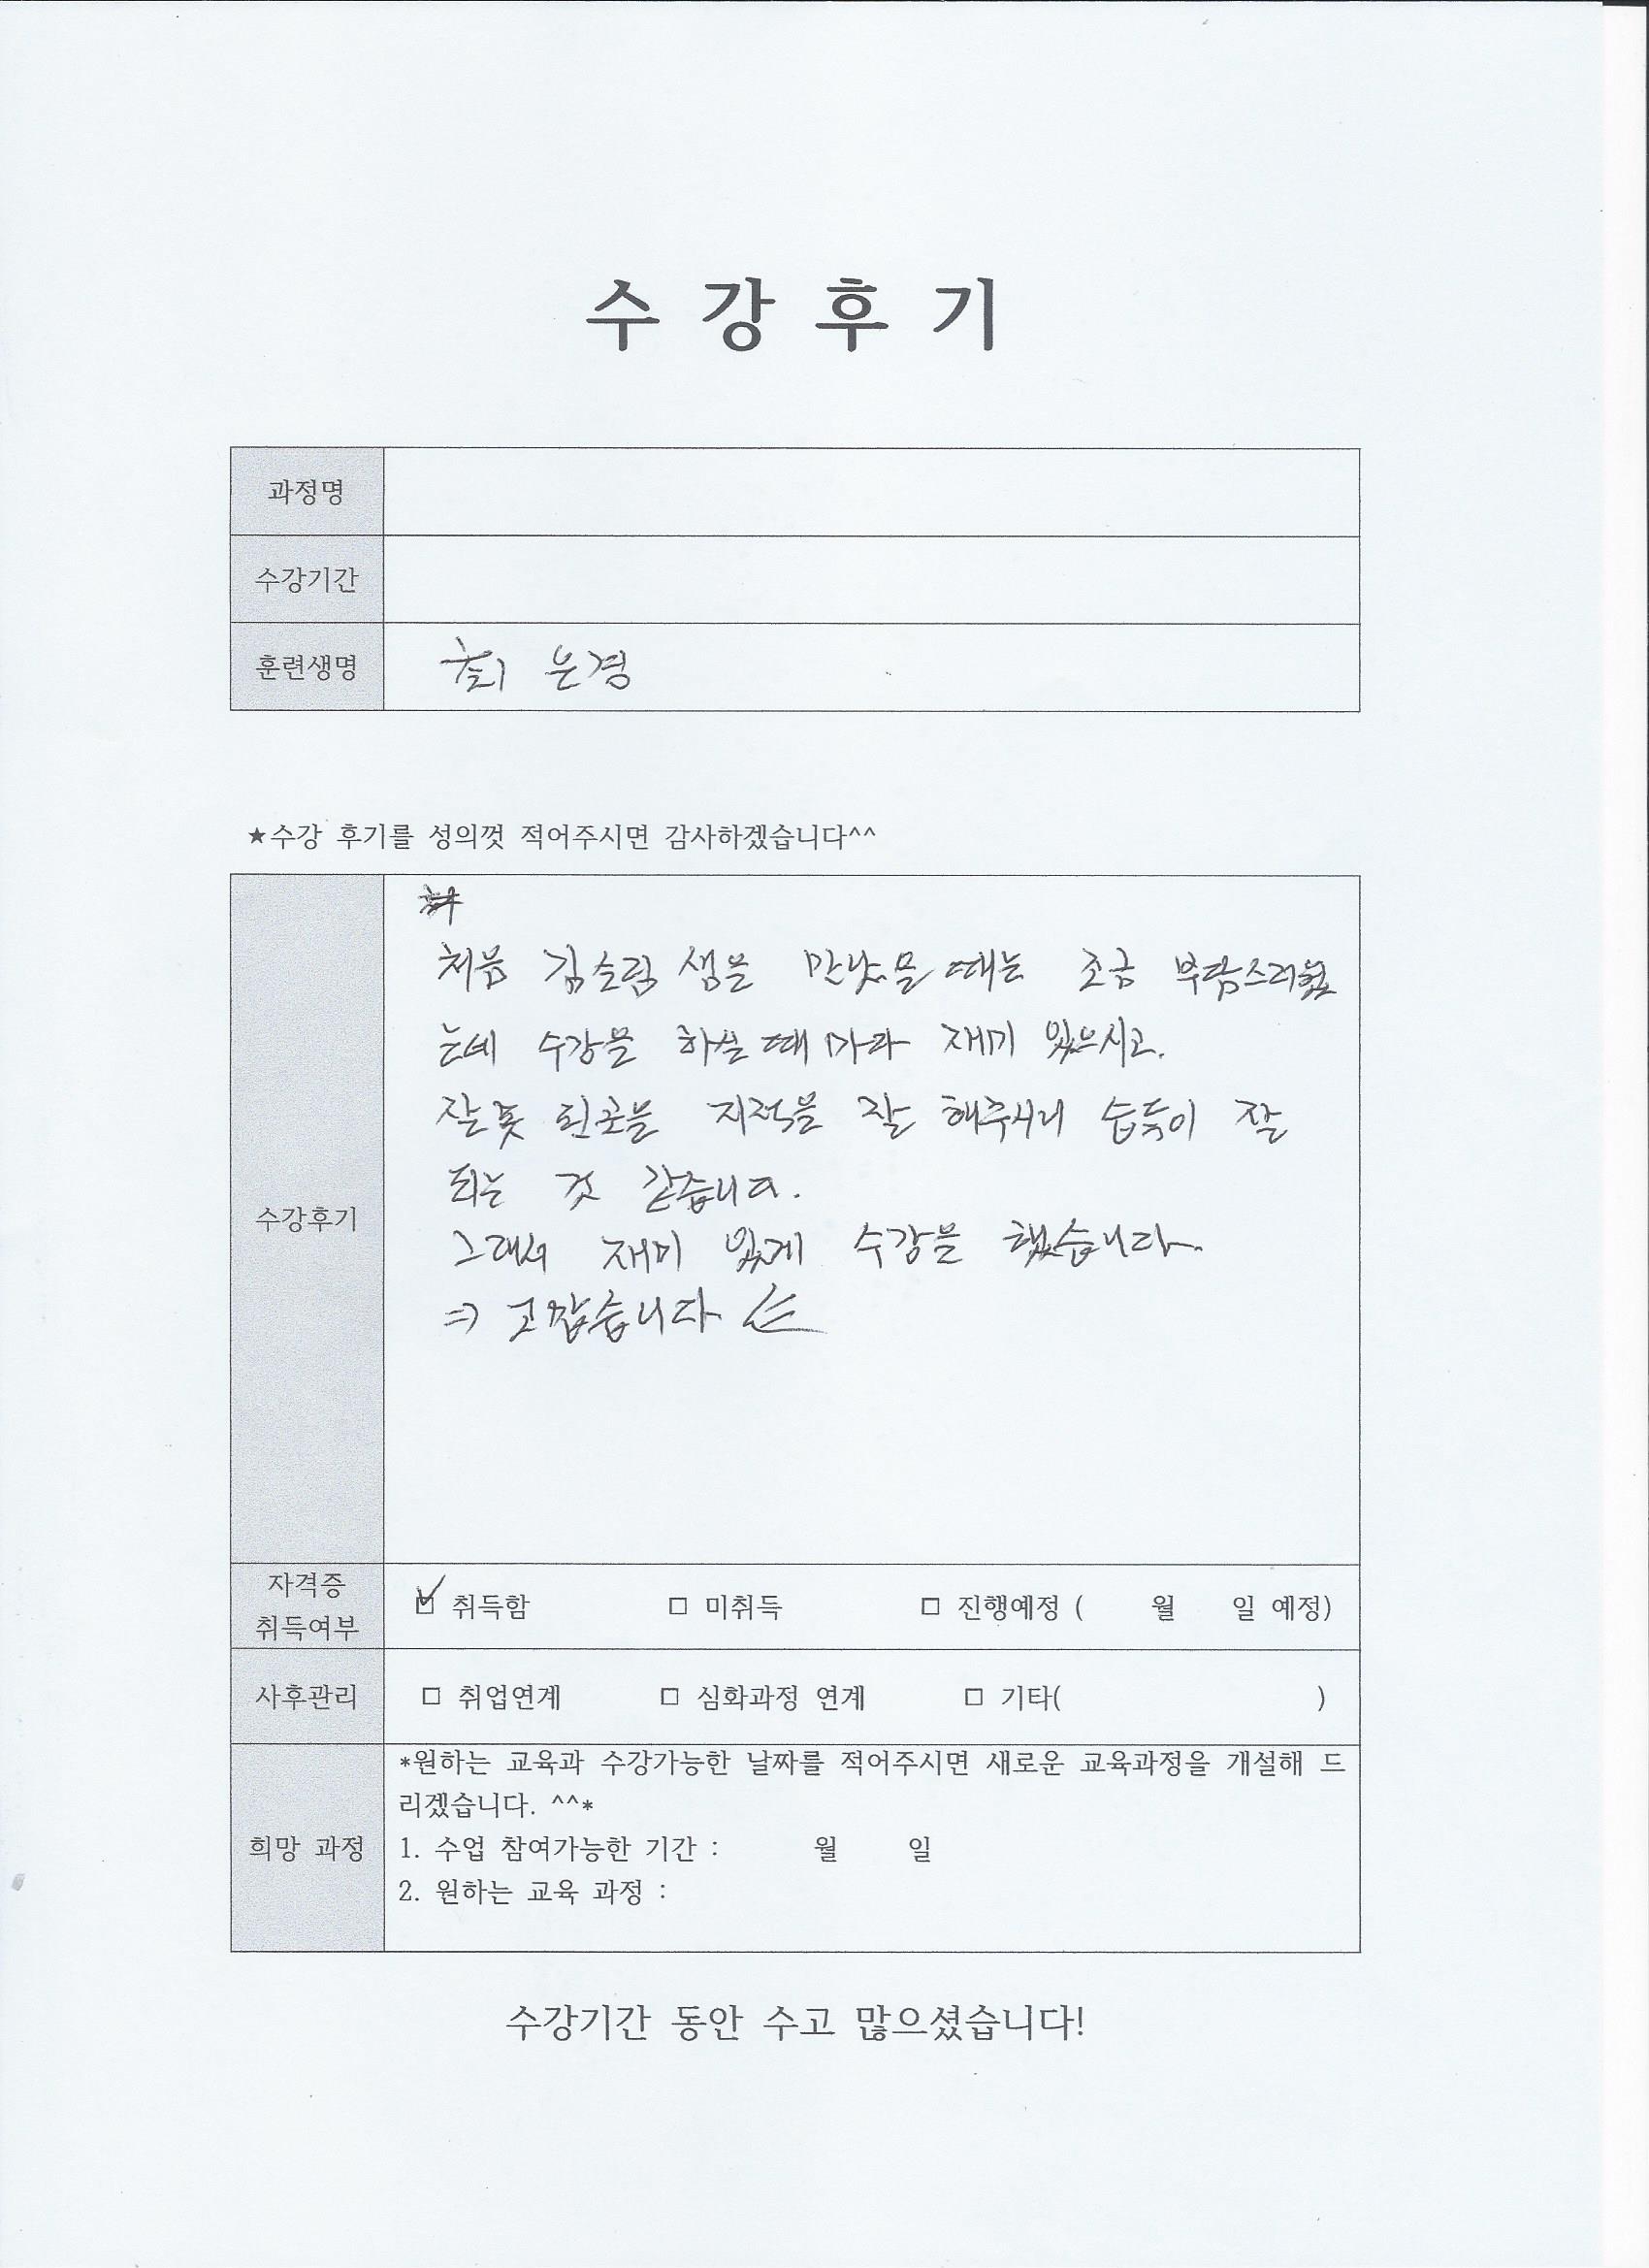 수 강 후 기
과정명
수강기간
훈련생명 최 은경
★수강 후기를 성의껏 적어주시면 감사하겠습니다^^
처음 김슬림 샘을 만났을 때는 조금 부담스러웠
는데 수강을 하실 때 마다 재미 있으시고.
잘못 된곳을 지적을 잘 해주시니 습득이 잘
되는 것 같습니다.
수강후기
그래서 재미 있게 수강을 했습니다.
=> 고맙습니다
자격증
취득여부
☑ 취득함 □ 미취득 □ 진행예정 ( 월 일 예정)
사후관리 □ 취업연계 □ 심화과정 연계 □ 기타( )
*원하는 교육과 수강가능한 날짜를 적어주시면 새로운 교육과정을 개설해 드
리겠습니다. ^^*
희망 과정
1. 수업 참여가능한 기간 : 월 일
2. 원하는 교육 과정 :
수강기간 동안 수고 많으셨습니다!